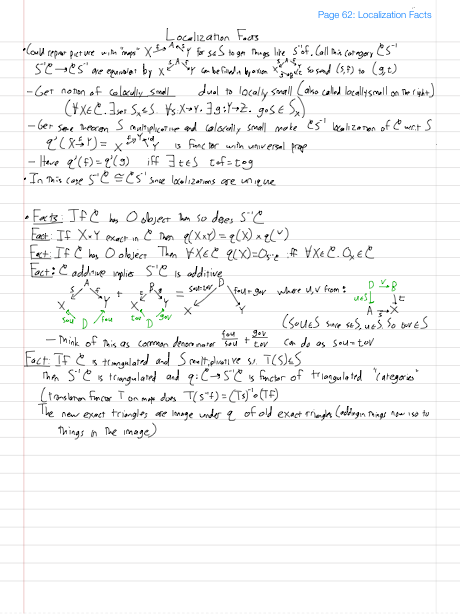 Page 62: Localization Facts
Localization Facts
• Could repeat picture with "maps" X →f A ←s Y for s∈S to get things like s⁻¹∘f. Call this category CS⁻¹
S⁻¹C → CS⁻¹ are equivalent by X ←s A →f Y can be found in by axiom so send (s,f) to (g,t)
– Get notion of colocally small dual to locally small (also called locally small on the right)
(∀X∈C. ∃set Sₓ⊆S. ∀s:X→Y. ∃g:Y→Z. g∘s∈Sₓ)
– Get same theorem S multiplicative and colocally small make CS⁻¹ localization of C w.r.t S
q'(X →f Y) = X →f Y ←id Y is functor with universal prop
– Have q'(f)=q'(g) iff ∃t∈S t∘f=t∘g
• In this case S⁻¹C ≅ CS⁻¹ since localizations are unique
• Facts: If C has 0 object then so does S⁻¹C
Fact: If X×Y exact in C then q(X×Y)=q(X)×q(Y)
Fact: If C has 0 object Then ∀X∈C q(X)=0 iff ∀X∈C. 0ₓ∈C
Fact: C additive implies S⁻¹C is additive
X ←s A →f Y + X ←t B →g Y = X ← D → Y f∘u+g∘v where u,v from: D →v B u∈S ↓ ↓ t A →s X
s∘u D f∘u t∘v D g∘v
(s∘u∈S since s∈S, u∈S. So t∘v∈S
– Think of this as common denominator f∘u/s∘u + g∘v/t∘v can do as s∘u=t∘v
Fact: If C is triangulated and S multiplicative s.t. T(S)⊆S
Then S⁻¹C is triangulated and q: C→S⁻¹C is functor of triangulated "categories"
(translation functor T on maps does T(s⁻¹f)=(Ts)⁻¹∘(Tf)
The new exact triangles are image under q of old exact triangles (adding in things now iso to
things in the image)